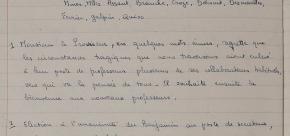 Mmes, Mlles Assent, Branche, Croze, Debard, Desmoulin,
1. Monsieur le Proviseur, en quelques mots émus, rappelle que
les circonstances tragiques que nous traversons ont enlevé
à leur poste de professeur plusieurs de ses collaborateurs
vers qui va la pensée de tous. Il souhaite ensuite la
bienvenue aux nouveaux professeurs.
2. Election à l'unanimité de Benjamin au poste de secrétaire,